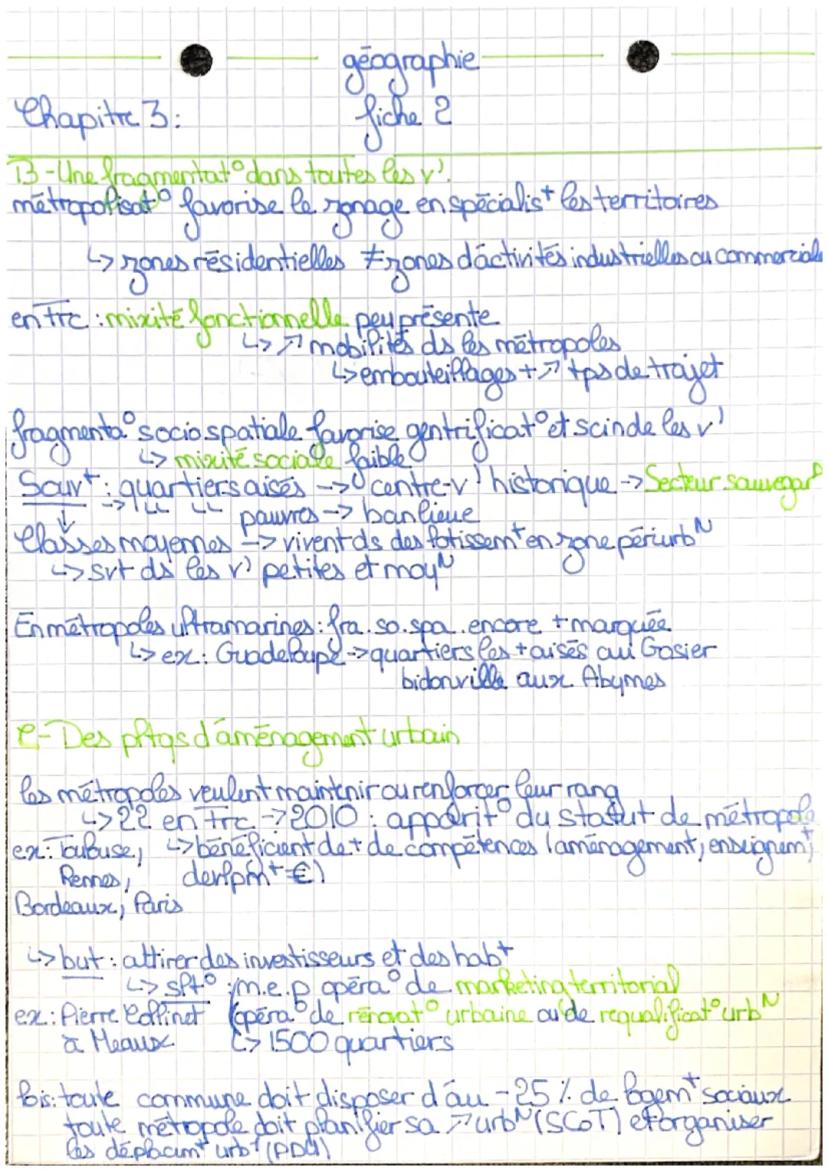 géographie
Chapitre 3: fiche 2
B-Une fragmentat° dans toutes les v'.
métropolisat° favorise le zonage en spécialist+ les territoires
↳ zones résidentielles ≠ zones d'activités industrielles ou commercial
en Frc : mixité fonctionnelle peu présente
↳ ↗ mobilités ds les métropoles
↳ embouteillages + ↗ tps de trajet
fragmenta° socio spatiale favorise gentrificat° et scinde les v'
↳ mixité sociale faible
Souv+ : quartiers aisés -> centre-v' historique -> Secteur sauvegar
-> " " pauvres -> banlieue
Classes moyennes -> vivent ds des lotissem+ en zone périurbN
↳ srt ds les v' petites et moyN
En métropoles ultramarines : fra. so. spa. encore + marquée
↳ ex : Guadeloupe -> quartiers les + aisés au Gosier
bidonville aux Abymes
C- Des pltqs d'aménagement urbain
les métropoles veulent maintenir ou renforcer leur rang
↳ 22 en Frc -> 2010 : apparit° du statut de métropole
ex : Toulouse, ↳ bénéficient de + de compétences (aménagement, enseignem+,
Rennes, dvlpm+ €)
Bordeaux, Paris
↳ but : attirer des investisseurs et des hab+
↳ slt° : m.e.p opéra° de marketing territorial
ex : Pierre Collinet (opéra° de rénovat° urbaine ou de requalificat° urbN
à Meaux ↳ 1500 quartiers
lois : toute commune doit disposer d'au - 25 % de logem+ sociaux
toute métropole doit planifier sa ↗ urbN (SCoT) et organiser
les déplacm+ urb+ (PDU)